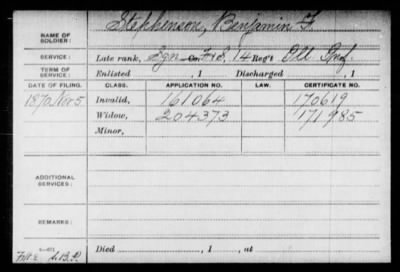 NAME OF SOLDIER: Stephenson, Benjamin F.
SERVICE: Late rank, Sgn Co. F&S, 14 Reg't Ill Inf.
TERM OF SERVICE: Enlisted , 1 Discharged , 1
DATE OF FILING. CLASS. APPLICATION NO. LAW. CERTIFICATE NO.
1870 Nov 5. Invalid, 161064 170619
Widow, 204373 171985
Minor,
ADDITIONAL SERVICES:
REMARKS:
Died , 1 , at